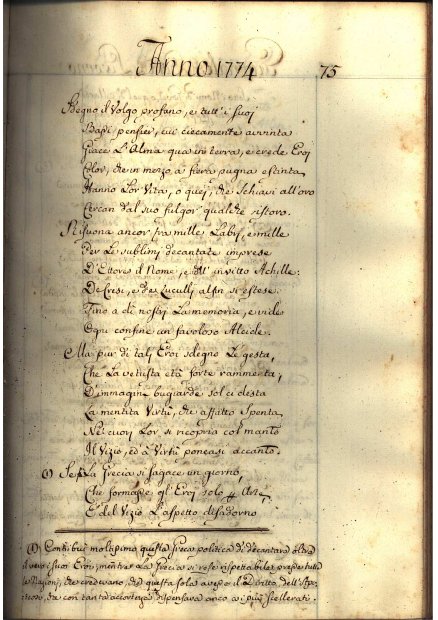 Anno 1774 75
Sdegno il Volgo profano, e tutt' i suoj
Bassi pensier, cui ciecamente avvinta
Giace L'Alma quà in terra, e crede Eroj
Color, che in mezzo a fiera pugna estinta
Hanno Lor Vita, o quej, che Schiavi all'oro
Cercan dal suo fulgor qualche ristoro.
Risuona ancor fra mille Labri, e mille
Per Le sublimi decantate imprese
D'Ettore il Nome, e dell' invitto Achille:
De Cresi, e de Luculli alfin si estese
Fino a dì nostri La memoria, e vide
Ogni confine un favoloso Alcide.
Ma pur di talj Eroi sdegno Le gesta,
Che La vetusta età forte rammenta,
D'immagini bugiarde sol ci desta
La mentita Virtù, che affatto Spenta
Nei cuori Lor si ricopria col manto
Il Vizio, ed à Virtù poneasi accanto.
(1) La Grecia sì sagace un giorno,
Che formasse gl'Eroj solo Arte
E del Vizio L'aspetto disadorno
(1) Contribuì moltissimo questa Greca politica di decantare
i suoi Eroi, mentre La Grecia si rese rispettabile presso tutte
Le Nazioni, che credevano, che questa sola avesse il Dritto dell'
che con tanta accortezza dispensava anco ai più scellerati.